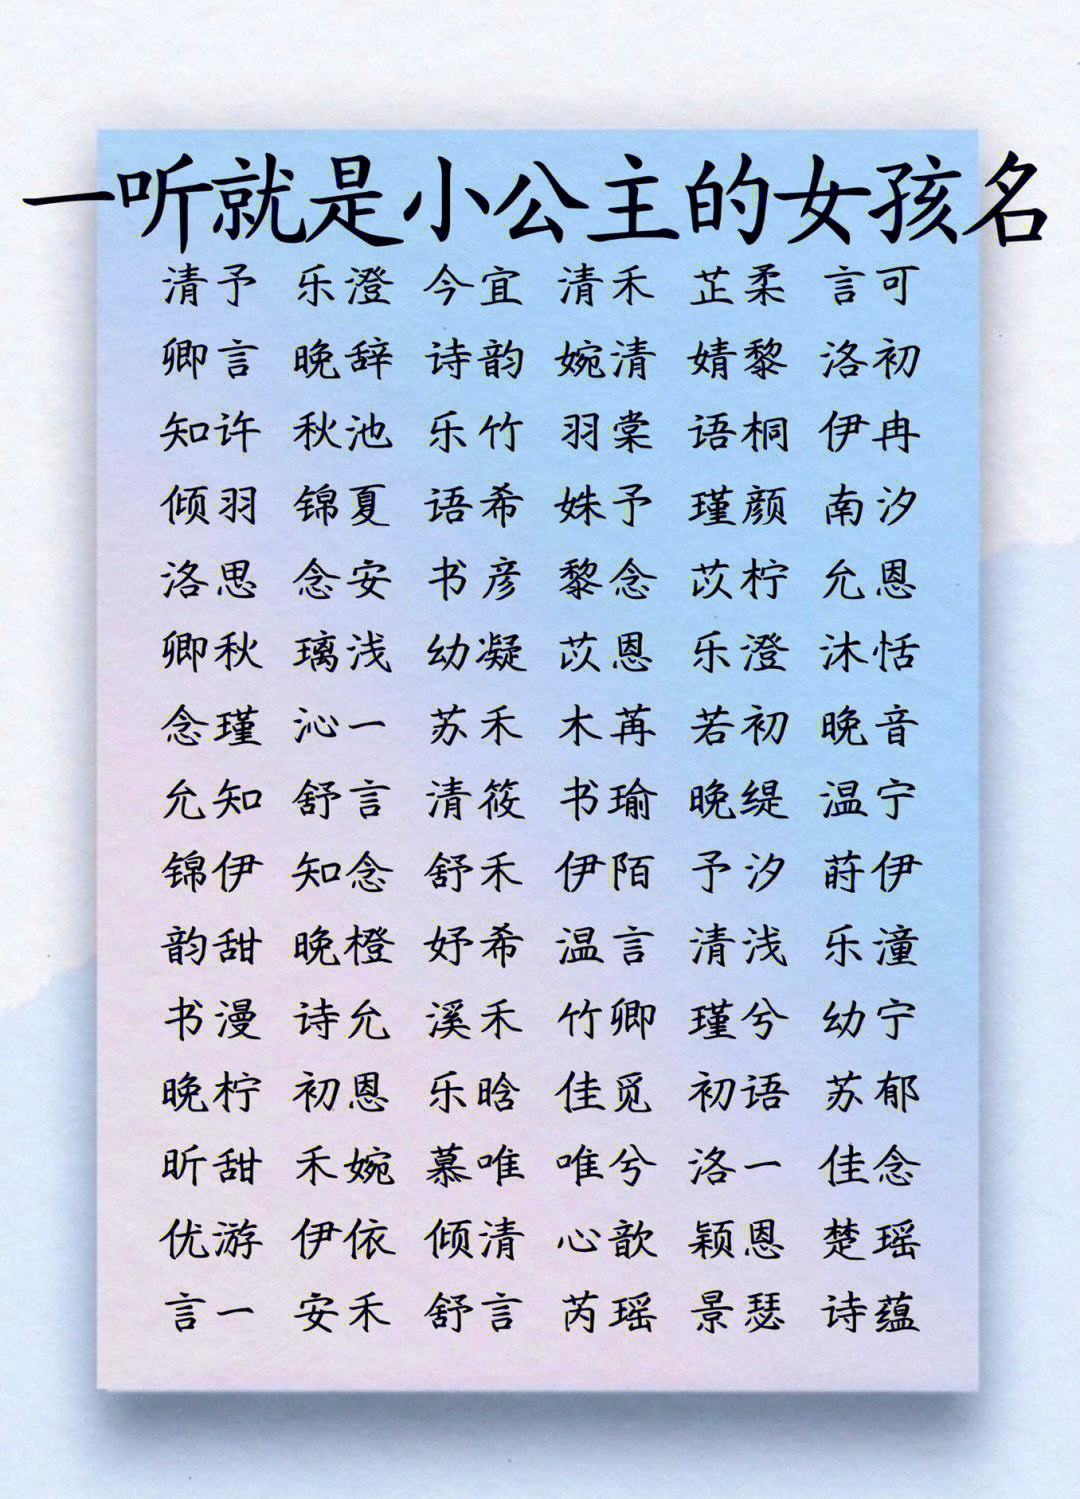 一听就是小公主的女孩名
清予 乐澄 今宜 清禾 芷柔 言可
卿言 晚辞 诗韵 婉清 婧黎 洛初
知许 秋池 乐竹 羽棠 语桐 伊冉
倾羽 锦夏 语希 姝予 瑾颜 南汐
洛思 念安 书彦 黎念 苡柠 允恩
卿秋 璃浅 幼凝 苡恩 乐澄 沐恬
念瑾 沁一 苏禾 木苒 若初 晚音
允知 舒言 清筱 书瑜 晚缇 温宁
锦伊 知念 舒禾 伊陌 予汐 莳伊
韵甜 晚橙 妤希 温言 清浅 乐潼
书漫 诗允 溪禾 竹卿 瑾兮 幼宁
晚柠 初恩 乐晗 佳觅 初语 苏郁
昕甜 禾婉 慕唯 唯兮 洛一 佳念
优游 伊依 倾清 心歆 颖恩 楚瑶
言一 安禾 舒言 芮瑶 景瑟 诗蕴